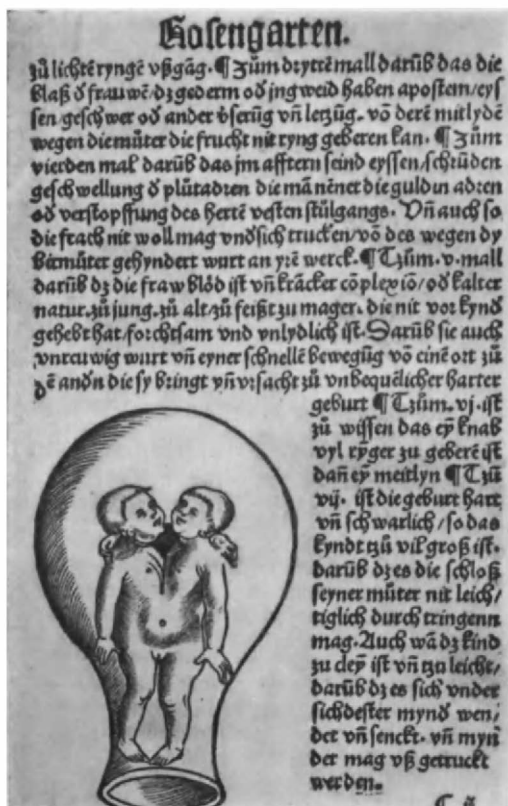 Rosengarten.
zů lichtē ryngē vßgāg. ¶ Zům drytteͤ mall darūb das die
blaß ď frauwē / dz gederm oď jngweid haben apostem / eys
sen / geschwer oď ander v̈serūg vn̄ letzūg. vō derē mitlydē
wegen die můter die frucht nit ryng geberen kan. ¶ Zům
vierden mal darūb das jm afftern seind eyssen / schrūden
geschwellung ď plůtadren die mā nēnet die guldin adren
oď verstopffung des hertē vesten stůlgangs. Vn̄ auch so
die frach nit woll mag vnďsich trucken / vō des wegen dy
běrmůter gehyndert wurt an yrē werck. ¶ Tzům. v. mall
darūb dz die fraw blöd ist vn̄ krācker cōplexiō / oď kalter
natur. zů jung. zů alt / zů feißt zu mager. die nit vor kynď
gehebt hat / forchtsam vnd vnlydlich ist. Darūb sie auch
vnruwig wurt vn̄ eyner schnellē bewegūg vō einē ort zů
dē andn die sy bringt yn̄ vrsacht zů vnbequēlicher harter
geburt ¶ Tzům. vj. ist
zů wissen das eȳ knab
vyl rȳger zu geberē ist
dan̄ eȳ meitlyn ¶ Tzū
vij. ist die geburt hart
vn̄ schwarlich / so das
kyndt tzů vil groß ist.
darūb dz es die schloß
seyner můter nit leich /
tiglich durch tringenn
mag. Auch wā dz kind
zu cleȳ ist vn̄ tzu leicht /
darūb dz es sich vnder
sich dester mynď wen /
det vn̄ senckt. vn̄ myn̄
der mag vß getruckt
werden.